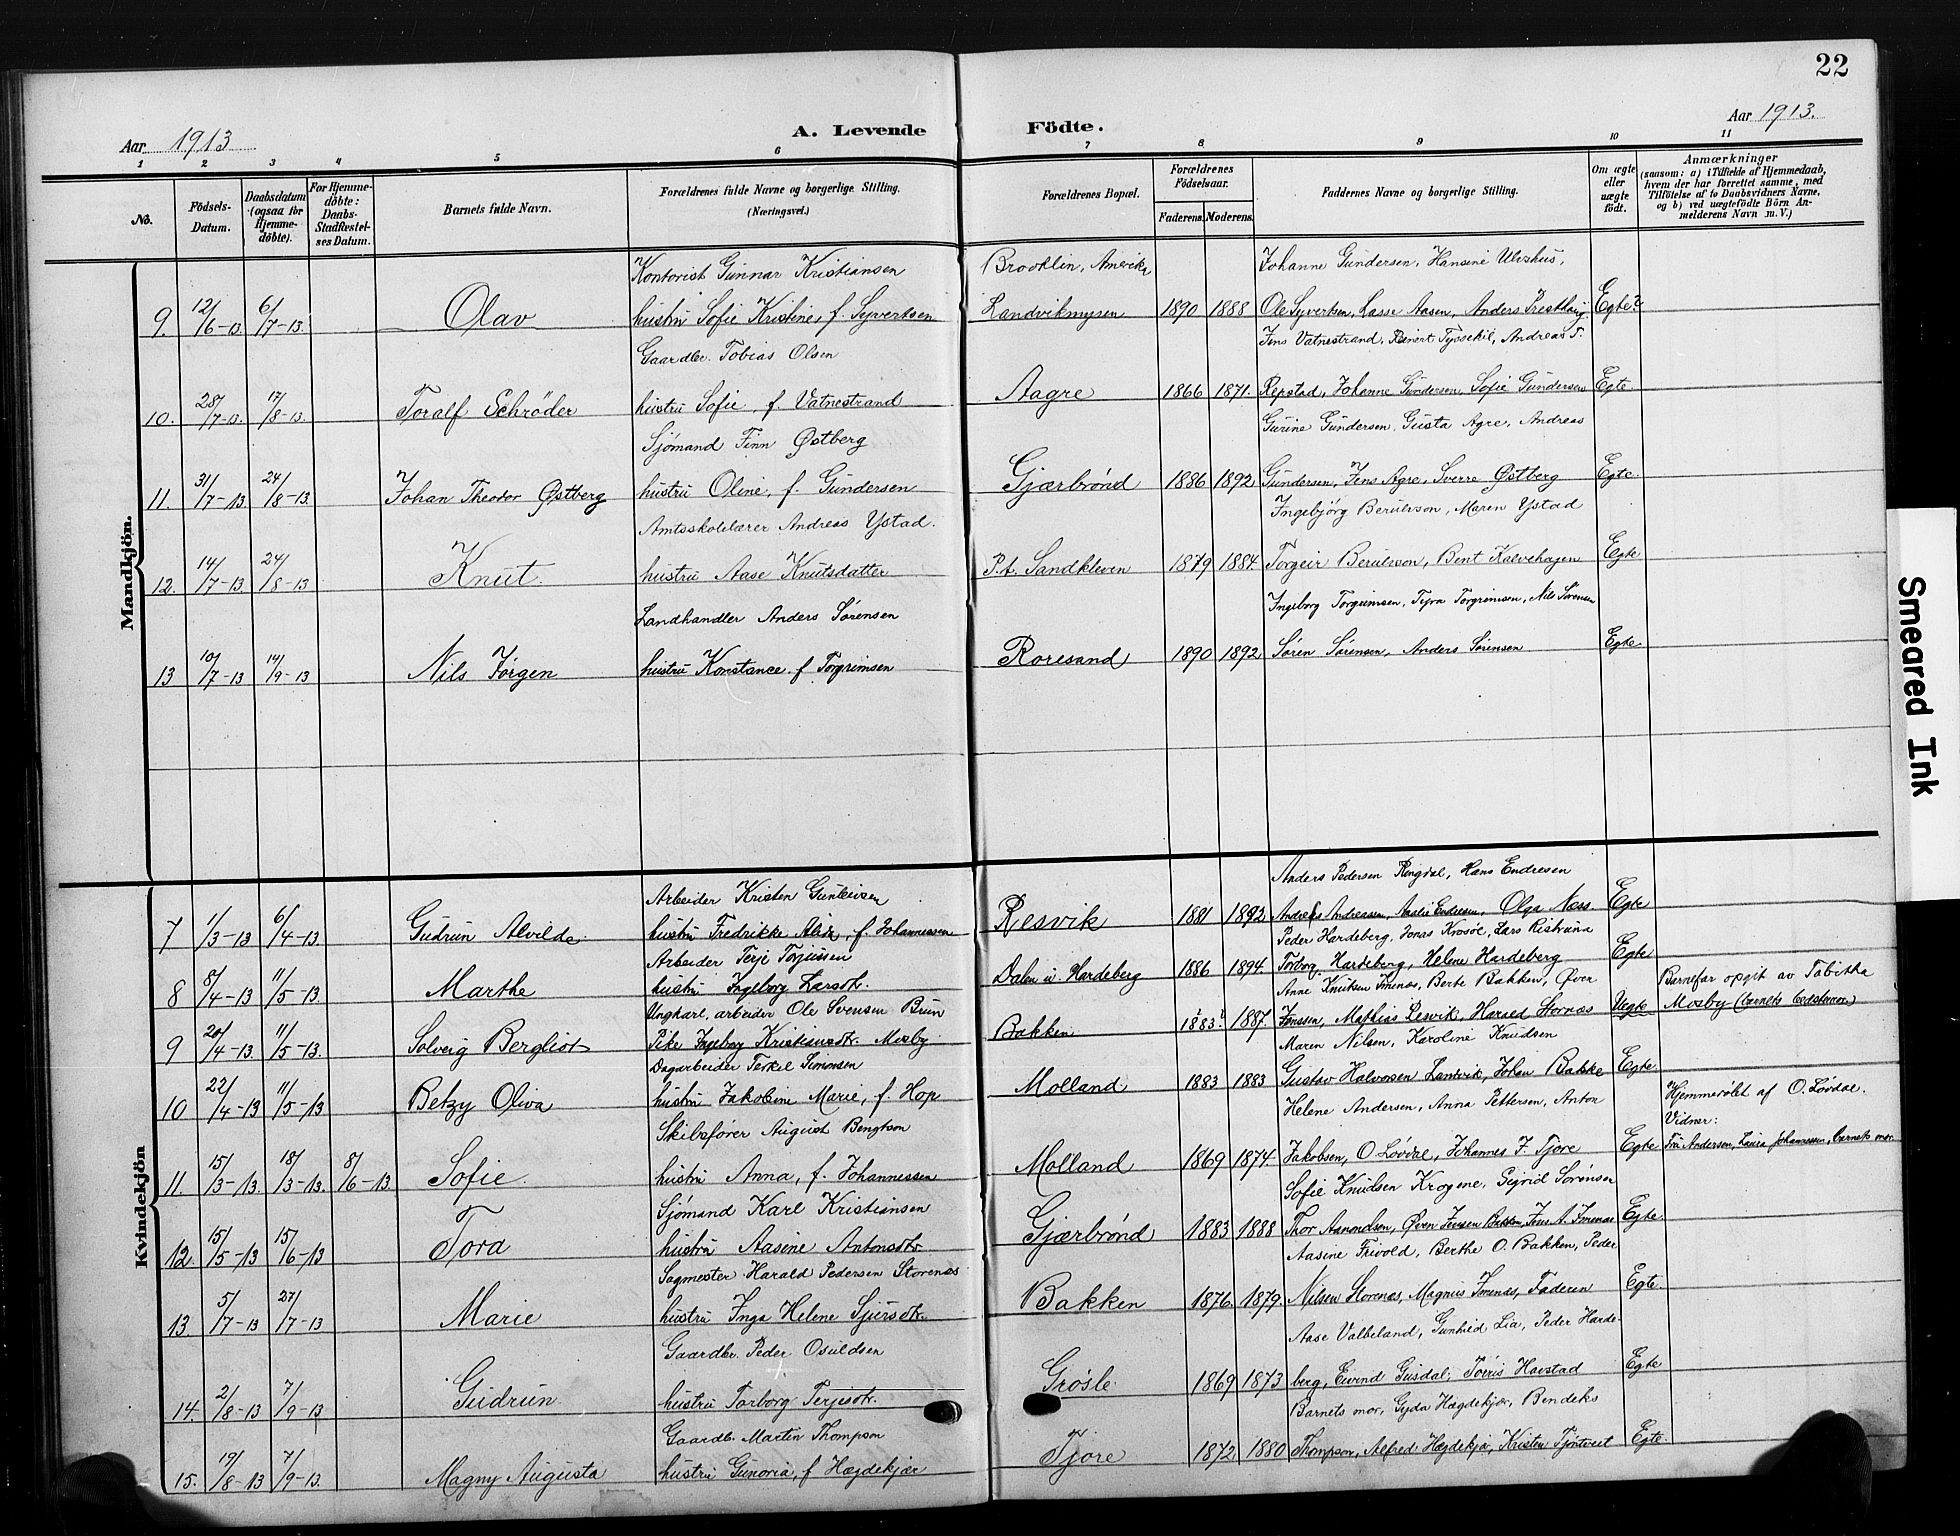 22
Aar 1913
A. Levende Födte.
Aar 1913.
1 2 3 4 5 6 7 8 9 10 11
No.
Födsels-Datum.
Daabsdatum (ogsaa for Hjemmedöbte).
For Hjemmedöbte: Daabs-Stadfæstelses Datum.
Barnets fulde Navn.
Forældrenes fulde Navne og borgerlige Stilling. (Næringsvei.)
Forældrenes Bopæl.
Forældrenes Födselsaar.
Faderens. Moderens.
Faddernes Navne og borgerlige Stilling.
Om ægte eller uægte födt.
Anmærkninger
(saasom: a) i Tilfælde af Hjemmedaab,
hvem der har forrettet samme, med
Tilföielse af to Daabsvidners Navne,
og b) ved uægtefödte Börn An-
melderens Navn m. V.)
Mandkjön.
Kontorist Gunnar Kristiansen Brooklin, Amerika Johanne Gundersen, Hansine
9. 12/6-13 6/7-13. Olav hustru Sofie Kristine, f. Syvertsen Landvikmysen 1890 1888 Ole Syvertsen, Lasse Aasen, Anders Presthaug Egte?
Gaardbr. Tobias Olsen Jens Vatnestrand, Reinert Tyssekil, Andreas T.
10. 28/7-13. 17/8-13. Toralf Schrøder hustru Sofie, f. Vatnestrand Aagre 1866 1871. Repstad, Johanne Gundersen, Sofie Gundersen Egte
Sjømand Finn Østberg Gurine Gundersen, Gusta Agre, Andreas
11. 31/7-13 24/8-13. Johan Theodor Østberg hustru Oline, f. Gundersen Gjærbrønd 1886 1892 Gundersen, Jens Agre, Sverre Østberg Egte
Amtsskolelærer Andreas Ystad. Ingebjörg Berulvson, Maren Ystad
12. 14/7-13 24/8-13 Knut hustru Aase Knutsdatter P.t. Sandkleven 1879 1884. Torgeir Berulvson, Bent Kalvehagen Egte
Landhandler Anders Sørensen Ingeborg Torgrimsen, Tyra Torgrimsen, Nils Sørensen
13 10/7-13 14/9-13 Nils Jørgen hustru Konstance f. Torgrimsen Roresand 1890 1892 Søren Sørensen, Anders Sørensen Egte
Kvindekjön
Arbeider Kristen Gunleivsen Anders Pedersen Ringdal, Hans Endresen
7 1/3-13 6/4-13. Gudrun Alvilde hustru Fredrikke Alida, f. Johannessen Resvik 1881 1892 Andreas Andreassen, Aaslie Endresen, Olga Næss Egte
Arbeider Terje Torjussen Peder Hardeberg, Jonas Krosöe, Lars Ristrana
8 8/4-13 11/5-13. Marthe hustru Ingeborg Larsdtr. Dalen u. Hardeberg 1886 1894. Torborg Hardeberg, Helene Hardeberg Egte
Ungkarl, arbeider Ole Svensen Bruun Anne Knutsen Imenæs, Berte Bakken, Øver Barnefar opgit av Tabitha
9 20/4-13. 11/5-13. Solveig Bergliot Pike Ingeborg Kristiansdtr. Mosby Bakken 1883 1887. Jenssen, Mathias Resvik, Harald Stornæs Uegte Mosby (barnets bedstemor)
Dagarbeider Terkel Simonsen Maren Nilsen, Karoline Knudsen
10 22/4-13 11/5-13 Betzy Oliva hustru Jakobine Marie, f. Hop Molland 1883 1883 Gustav Halvorsen Landvik, Johan Bakke Egte
Skibsfører August Bengtson Helene Andersen, Anna Pettersen, Anton Hjemmedølet af O. Løvdal. Vidner:
11. 15/3-13. 18/3-13. 8/6-13. Sofie. hustru Anna, f. Johannessen Molland 1869 1874. Jakobsen, O. Løvdal, Johannes J. Tjore Egte Fru Andersen, Laura Johannessen, barnets mor.
Sjømand Karl Kristiansen Sofie Knudsen Krogene, Sigrid Sørensen
12. 15/5-13 15/6-13 Tora hustru Aasine Antonsdtr. Gjærbrønd 1883 1888 Thor Aanondsen, Øven Jensen Bakken, Jens A. Imenæs Egte.
Sagmester Harald Pedersen Storenæs Aasine Frivold, Berthe O. Bakken, Peder
13 5/7-13 27/7-13 Marie hustru Inga Helene Sjursdtr. Bakken 1876. 1879. Nilsen Storenæs, Magnus Imenæs, Faderen Egte.
Gaardbr. Peder Osuldsen Aase Valbeland, Gunhild Lia, Peder Harde-
14. 2/8-13 7/9-13 Gudrun hustru Torborg Terjesdtr. Grósle. 1869 1873 berg, Eivind Gusdal, Toeris Havstad Egte
Gaardb. Martin Thompson Barnets mor, Gyda Hægdekjær, Bendeks
15. 19/8-13 7/9-13. Magny Augusta hustru Gunoria, f. Hægdekjær Tjore 1872. 1880 Thompson, Alfred Hægdekjæ, Kristen Tjöntveit Egte.
Smeared Ink